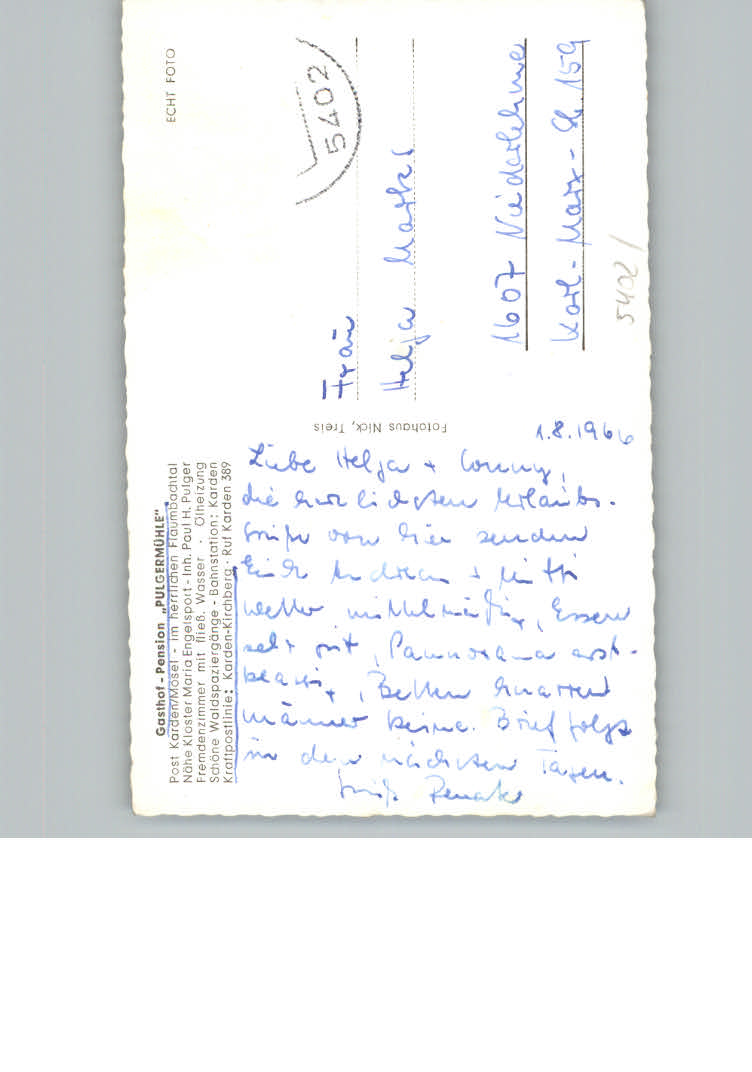 Gasthof - Pension „PULGERMÜHLE"
Post Karden/Mosel - im herrlichen Flaumbachtal
Nähe Kloster Maria Engelsport - Inh. Paul H. Pulger
Fremdenzimmer mit fließ. Wasser · Ölheizung
Schöne Waldspaziergänge - Bahnstation: Karden
Kraftpostlinie: Karden-Kirchberg · Ruf Karden 389
1.8.1966
Liebe Helja + Conny,
die herzlichsten Urlaubs-
grüße von hier senden
Euch Andrea + Mutti
Wetter mittelmäßig, Essen
sehr gut, Pannorama erst-
klassig, Betten knarren
Männer keine. Brief folgt
in den nächsten Tagen.
Gruß Renate
Fotohaus Nick, Treis
ECHT FOTO
5402
Frau
Helja
1607 Niederlehme
Karl-Marx-Str. 159
5402 /